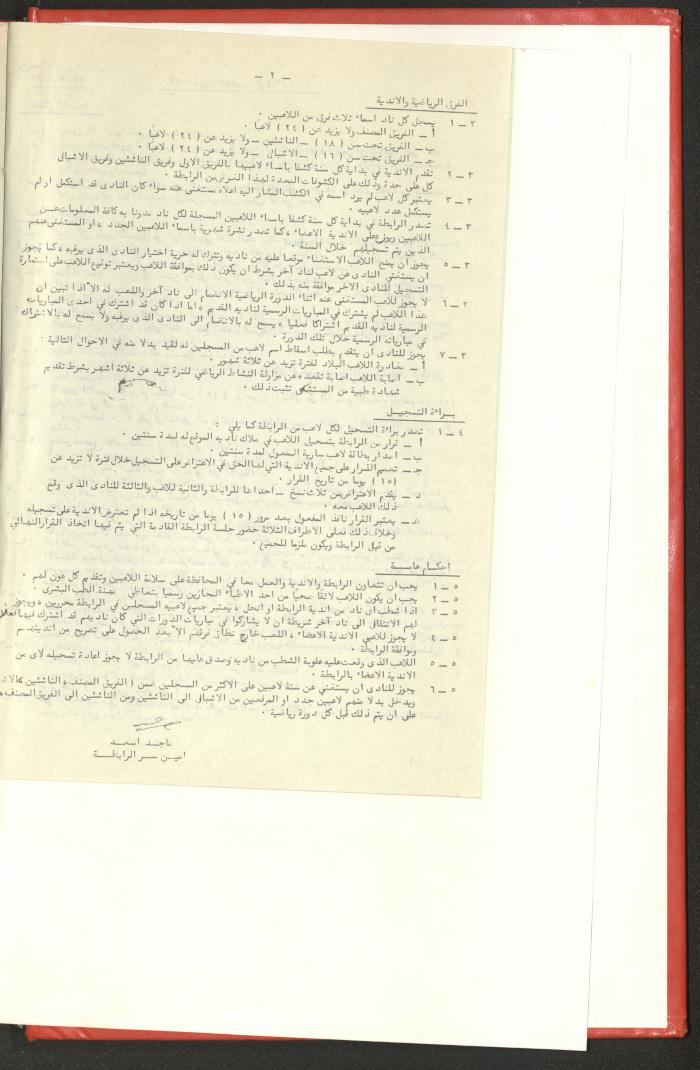 — ٢ —
الفرق الرياضية والاندية
٣ – ١ يسجل كل ناد اسماء ثلاث فرق من اللاعبين .
أ – الفريق المصنف ولا يزيد عن ( ٢٤ ) لاعبا .
ب – الفريق تحت سن ( ١٨ ) – الناشئين – ولا يزيد عن ( ٢٤ ) لاعبا .
جـ – الفريق تحت سن ( ١٦ ) – الاشبال – ولا يزيد عن ( ٢٤ ) لاعبا .
٣ – ٢ تقدم الاندية في بداية كل سنة كشفا باسماء لاعبيها بالفريق الاول وفريق الناشئين وفريق الاشبال
كل على حدة وذلك على الكشوفات المعدة لهذا الغرض من الرابطة .
٣ – ٣ يعتبر كل لاعب لم يرد اسمه في الكشف المشار اليه اعلاه مستغنى عنه سواء كان النادى قد استكمل او لم
يستكمل عدد لاعبيه .
٣ – ٤ تصدر الرابطة في بداية كل سنة كشفا باسماء اللاعبين المسجلة لكل ناد مدونا به كافة المعلومات عن
اللاعبين ويوزع على الاندية الاعضاء ، كما تصدر نشرة شهرية باسماء اللاعبين الجدد ، او المستغنى عنهم
الذين يتم تسجيلهم خلال السنة .
٣ – ٥ يجوز ان يمنح اللاعب الاستغناء موقعا عليه من ناديه وتترك له حرية اختيار النادى الذى يرغبه ، كما يجوز
ان يستغنى النادى عن لاعب لناد آخر بشرط ان يكون ذلك بموافقة اللاعب ويعتبر توقيع اللاعب على استمارة
التسجيل للنادى الاخر موافقة منه بذلك .
٣ – ٦ لا يجوز للاعب المستغنى عنه اثناء الدورة الرياضية الانضمام الى ناد آخر واللعب له الا اذا تبين ان
هذا اللاعب لم يشترك في المباريات الرسمية لناديه القديم ، اما اذا كان قد اشترك في احدى المباريات
الرسمية لناديه القديم اشتراكا فعليا ، يسمح له بالانضمام الى النادى الذى يرغبه ولا يسمح له بالاشتراك
في مبارياته الرسمية خلال تلك الدورة .
٣ – ٧ يجوز للنادى ان يتقدم بطلب اسقاط اسم لاعب من المسجلين له لقيد بدلا منه في الاحوال التالية :
أ – مغادرة اللاعب البلاد لفترة تزيد عن ثلاثة شهور .
ب – اصابة اللاعب اصابة تقعده عن مزاولة النشاط الرياضي لفترة تزيد عن ثلاثة اشهر بشرط تقديم
شهادة طبية من المستشفى تثبت ذلك .
بــراءة التسجيــل
٤ – ١ تصدر براءة التسجيل لكل لاعب من الرابطة كما يلي :
أ – قرار من الرابطة بتسجيل اللاعب في ملاك ناديه الموقع له لمدة سنتين .
ب – اصدار بطاقة لاعب سارية المفعول لمدة سنتين .
جـ – تعميم القرار على جميع الاندية التي لها الحق في الاعتراض على التسجيل خلال فترة لا تزيد عن
( ١٥ ) يوما من تاريخ القرار .
د – يقدم الاعتراض من ثلاث نسخ – احداها للرابطة والثانية للاعب والثالثة للنادى الذى وقع
ذلك اللاعب معه .
هـ – يعتبر القرار نافذ المفعول بعد مرور ( ١٥ ) يوما من تاريخه اذا لم تعترض الاندية على تسجيله
وخلاف ذلك فعلى الاطراف الثلاثة حضور جلسة الرابطة القادمة التي يتم فيها اتخاذ القرار النهائي
من قبل الرابطة ويكون ملزما للجميع .
احكــام عامــة
٥ – ١ يجب ان تتعاون الرابطة والاندية والعمل معا في المحافظة على سلامة اللاعبين وتقديم كل عون لهم .
٥ – ٢ يجب ان يكون اللاعب لائقا صحيا من احد الاطباء المجازين رسميا بتعاطي مهنة الطب البشرى .
٥ – ٣ اذا شطب اى ناد من اندية الرابطة او انحل ، يعتبر جميع لاعبيه المسجلين في الرابطة محررين ، ويجوز
لهم الانتقال الى ناد آخر شريطة ان لا يشاركوا في مباريات الدورات التي كان ناديهم قد اشترك فيها فعلا
٥ – ٤ لا يجوز للاعبي الاندية الاعضاء ، اللعب خارج نطاق فرقهم الا بعد الحصول على تصريح من انديتهم
وموافقة الرابطة .
٥ – ٥ اللاعب الذى وقعت عليه عقوبة الشطب من ناديه وصدق عليها من الرابطة لا يجوز اعادة تسجيله لاى من
الاندية الاعضاء بالرابطة .
٥ – ٦ يجوز للنادى ان يستغني عن ستة لاعبين على الاكثر من المسجلين ضمن ( الفريق المصنف ، الناشئين
ويدخل بدلا منهم لاعبين جدد او المرفعين من الاشبال الى الناشئين ومن الناشئين الى الفريق المصنف ،
على ان يتم ذلك قبل كل دورة رياضية .
ماجـد اسعـد
اميـن سـر الرابطــة